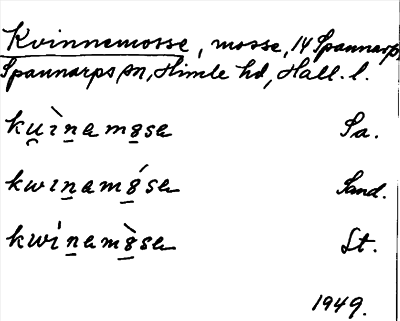 Kvinnemosse, mosse, 14 Spannarp,
Spannarps sn, Himle hd, Hall. l.
kuìnamosa Sa.
kwinamósa Sand.
kwínamòsa St.
1949.